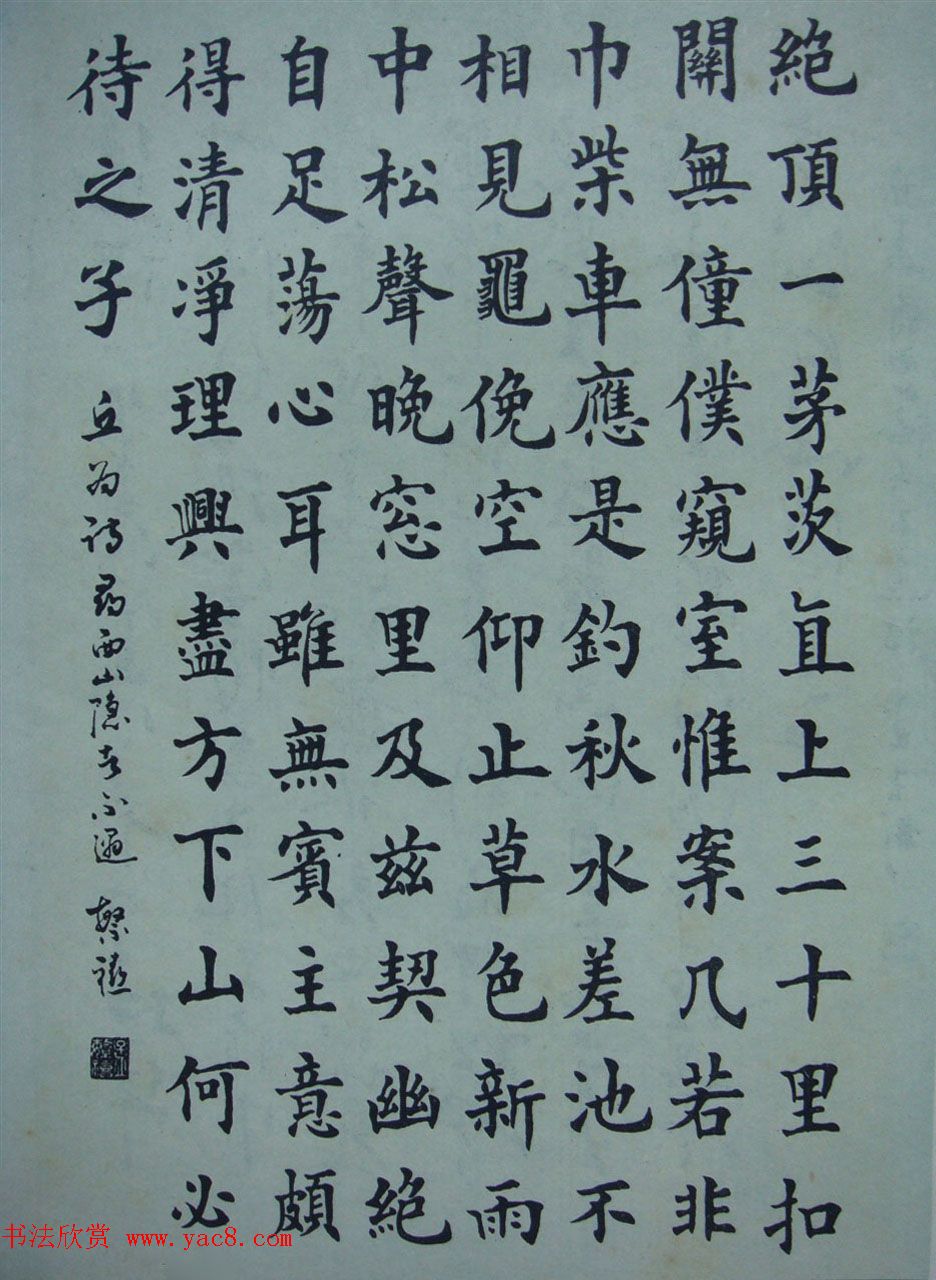 絕頂一茅茨直上三十里扣
關無僮僕窺室惟案几若非
巾柴車應是釣秋水差池不
相見黽俛空仰止草色新雨
中松聲晚窓里及茲契幽絕
自足蕩心耳雖無賓主意頗
得清淨理興盡方下山何必
待之子
丘为诗尋西山隐者不遇
书法欣赏 www.yac8.com